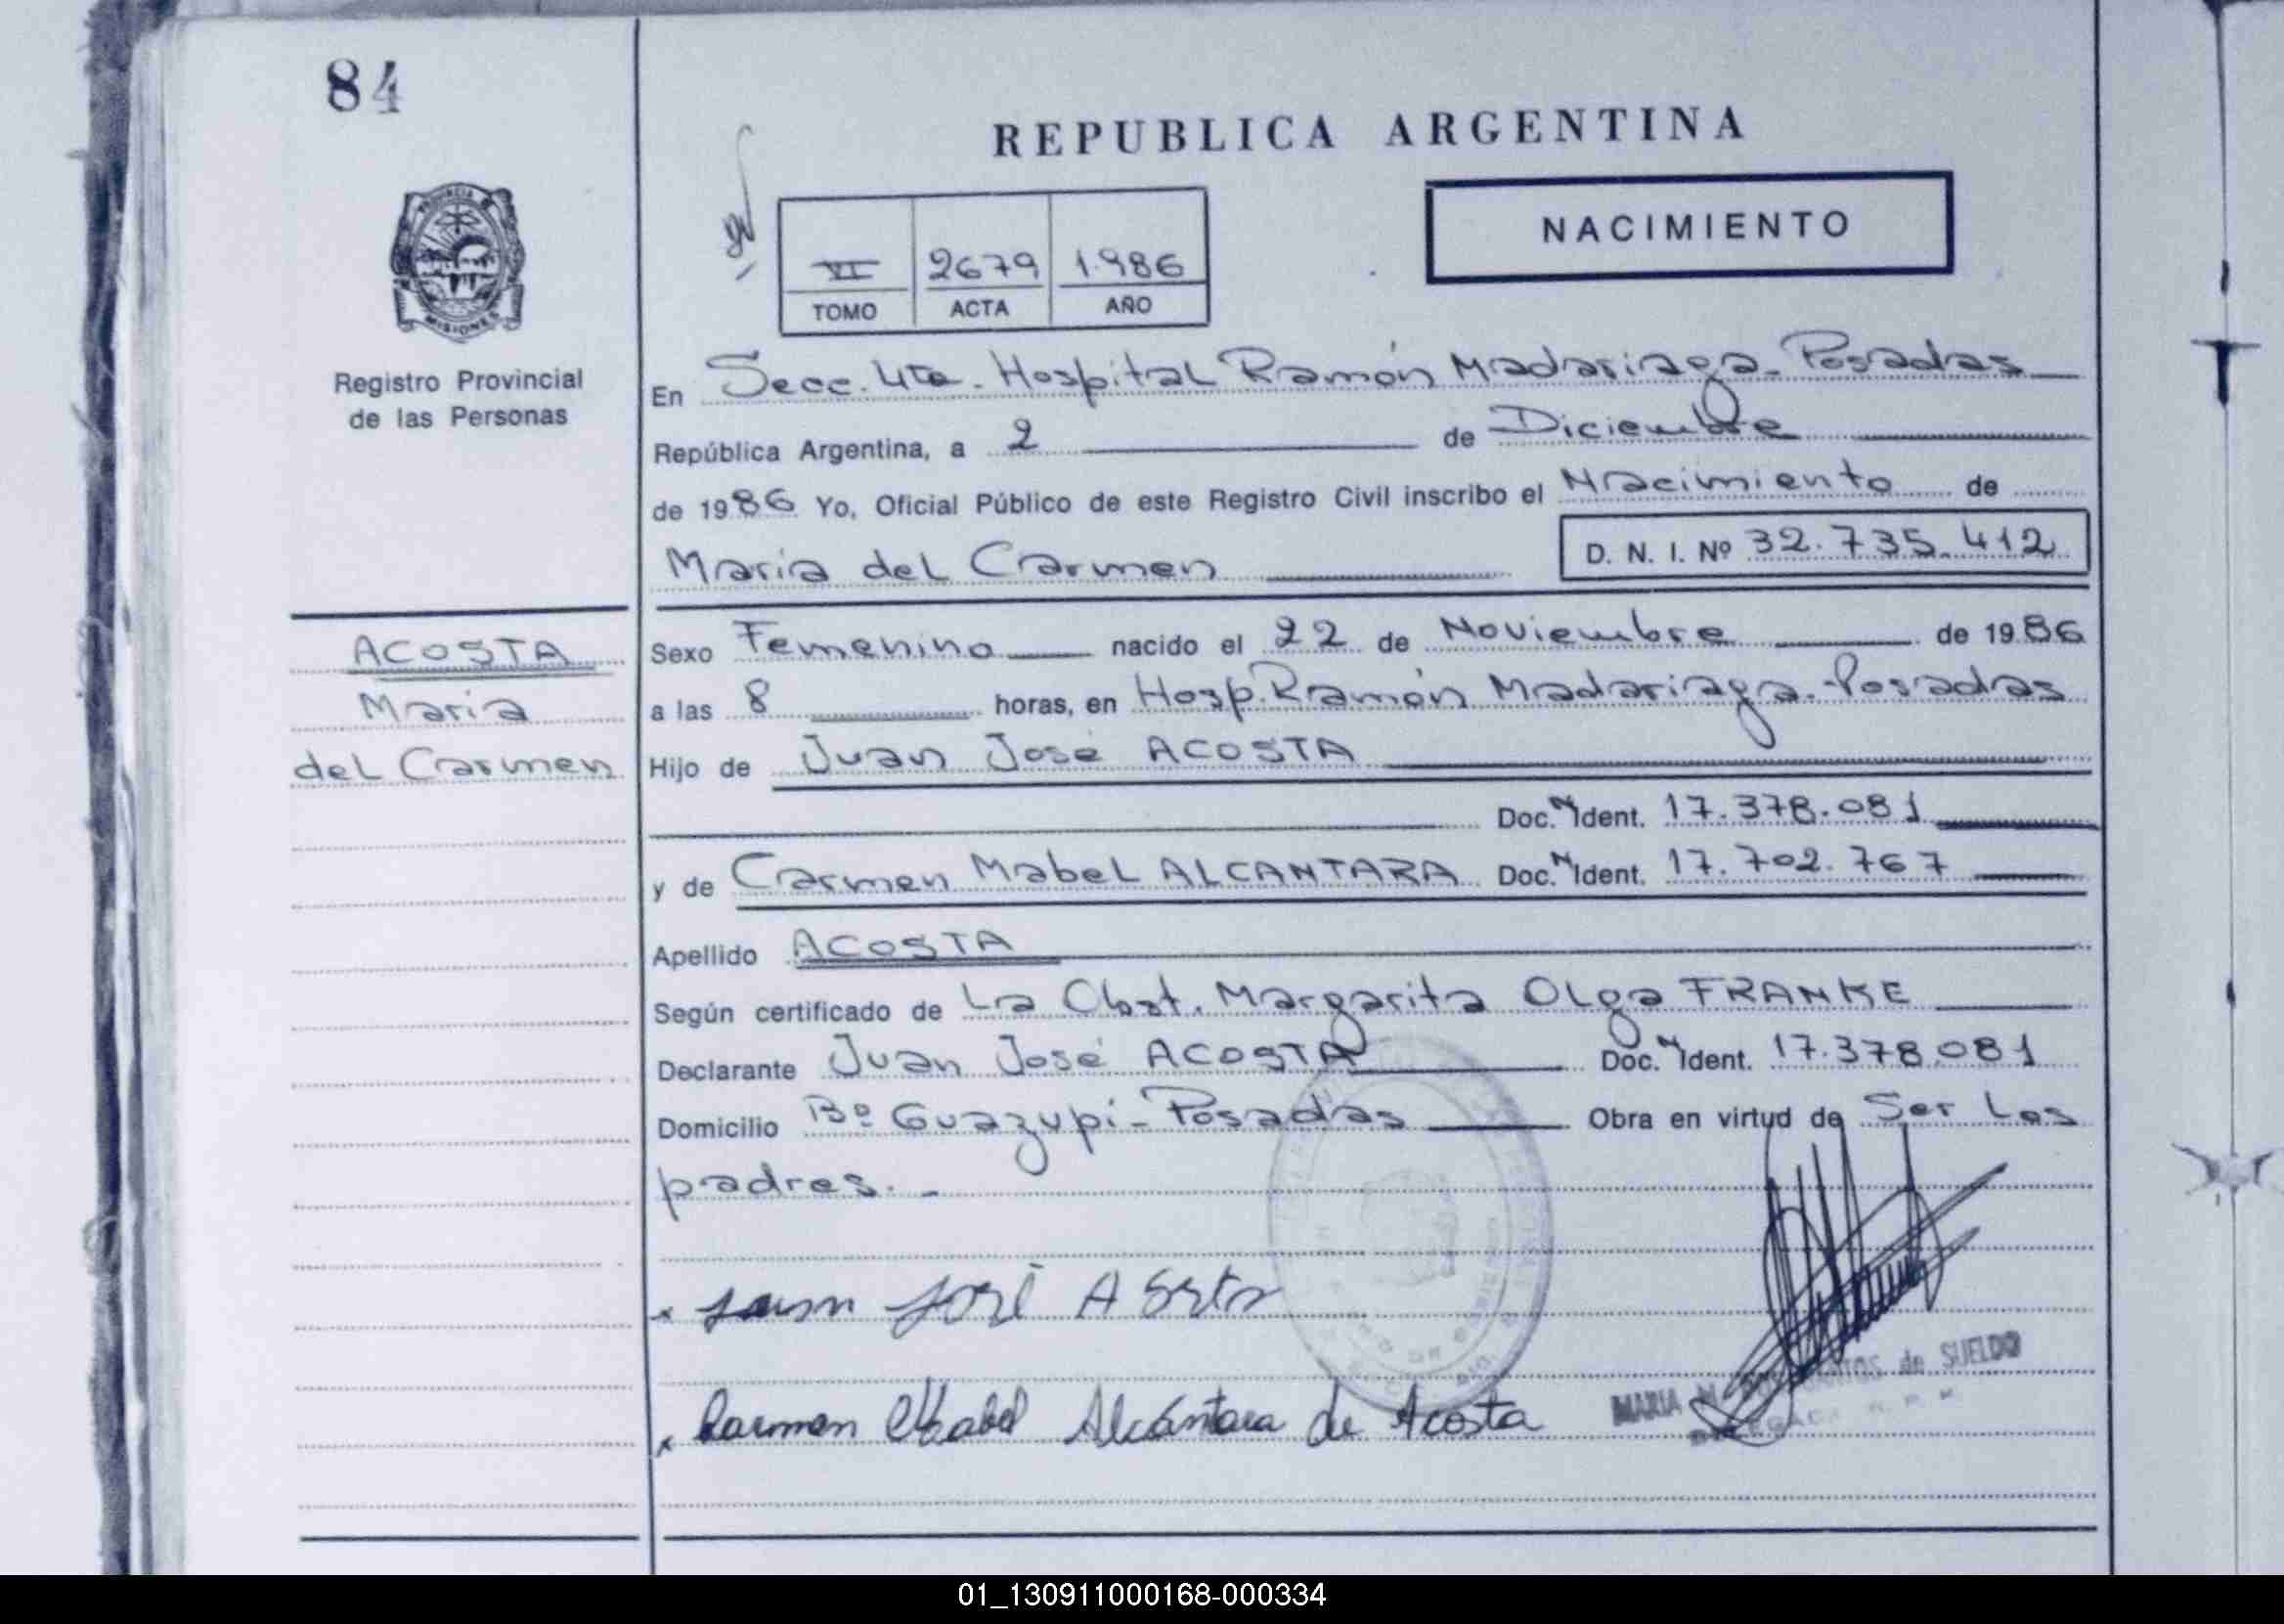 84
REPUBLICA ARGENTINA
NACIMIENTO
VI 2679 1.986
TOMO ACTA AÑO
PROVINCIA
MISIONES
Registro Provincial
de las Personas
En Secc. 4ta. Hospital Ramón Madariaga - Posadas
República Argentina, a 2 de Diciembre
de 1986 Yo, Oficial Público de este Registro Civil inscribo el Nacimiento de
María del Carmen D. N. I. Nº 32.735.412
ACOSTA
María
del Carmen
Sexo Femenino nacido el 22 de Noviembre de 1986
a las 8 horas, en Hosp. Ramón Madariaga - Posadas
Hijo de Juan José ACOSTA
Doc. N Ident. 17.378.081
y de Carmen Mabel ALCANTARA Doc. N Ident. 17.702.767
Apellido ACOSTA
Según certificado de La Obst. Margarita Olga FRANKE
Declarante Juan José ACOSTA Doc. N Ident. 17.378.081
Domicilio Bº Guazupi - Posadas Obra en virtud de Ser Los
padres. -
x Juan José Acosta
MARIA de SUELDO
x Carmen Mabel Alcántara de Acosta
01_130911000168-000334